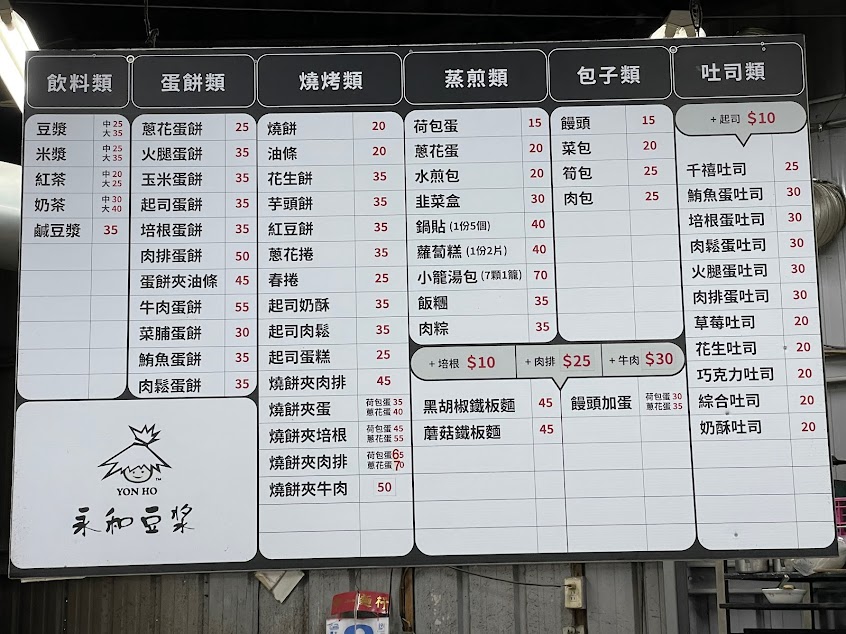 飲料類
豆漿 中25 大35
米漿 中25 大35
紅茶 中20 大25
奶茶 中30 大40
鹹豆漿 35
蛋餅類
蔥花蛋餅 25
火腿蛋餅 35
玉米蛋餅 35
起司蛋餅 35
培根蛋餅 35
肉排蛋餅 50
蛋餅夾油條 45
牛肉蛋餅 55
菜脯蛋餅 30
鮪魚蛋餅 35
肉鬆蛋餅 35
燒烤類
燒餅 20
油條 20
花生餅 35
芋頭餅 35
紅豆餅 35
蔥花捲 35
春捲 25
起司奶酥 35
起司肉鬆 35
起司蛋糕 25
燒餅夾肉排 45
燒餅夾蛋 荷包蛋35 蔥花蛋40
燒餅夾培根 荷包蛋45 蔥花蛋55
燒餅夾肉排 荷包蛋65 蔥花蛋70
燒餅夾牛肉 50
蒸煎類
荷包蛋 15
蔥花蛋 20
水煎包 20
韭菜盒 30
鍋貼 (1份5個) 40
蘿蔔糕 (1份2片) 40
小籠湯包 (7顆1籠) 70
飯糰 35
肉粽 35
包子類
饅頭 15
菜包 20
筍包 25
肉包 25
+培根 $10
+肉排 $25
+牛肉 $30
黑胡椒鐵板麵 45
蘑菇鐵板麵 45
饅頭加蛋 荷包蛋30 蔥花蛋35
吐司類
+起司 $10
千禧吐司 25
鮪魚蛋吐司 30
培根蛋吐司 30
肉鬆蛋吐司 30
火腿蛋吐司 30
肉排蛋吐司 30
草莓吐司 20
花生吐司 20
巧克力吐司 20
綜合吐司 20
奶酥吐司 20
YON HO
TM
永和豆漿